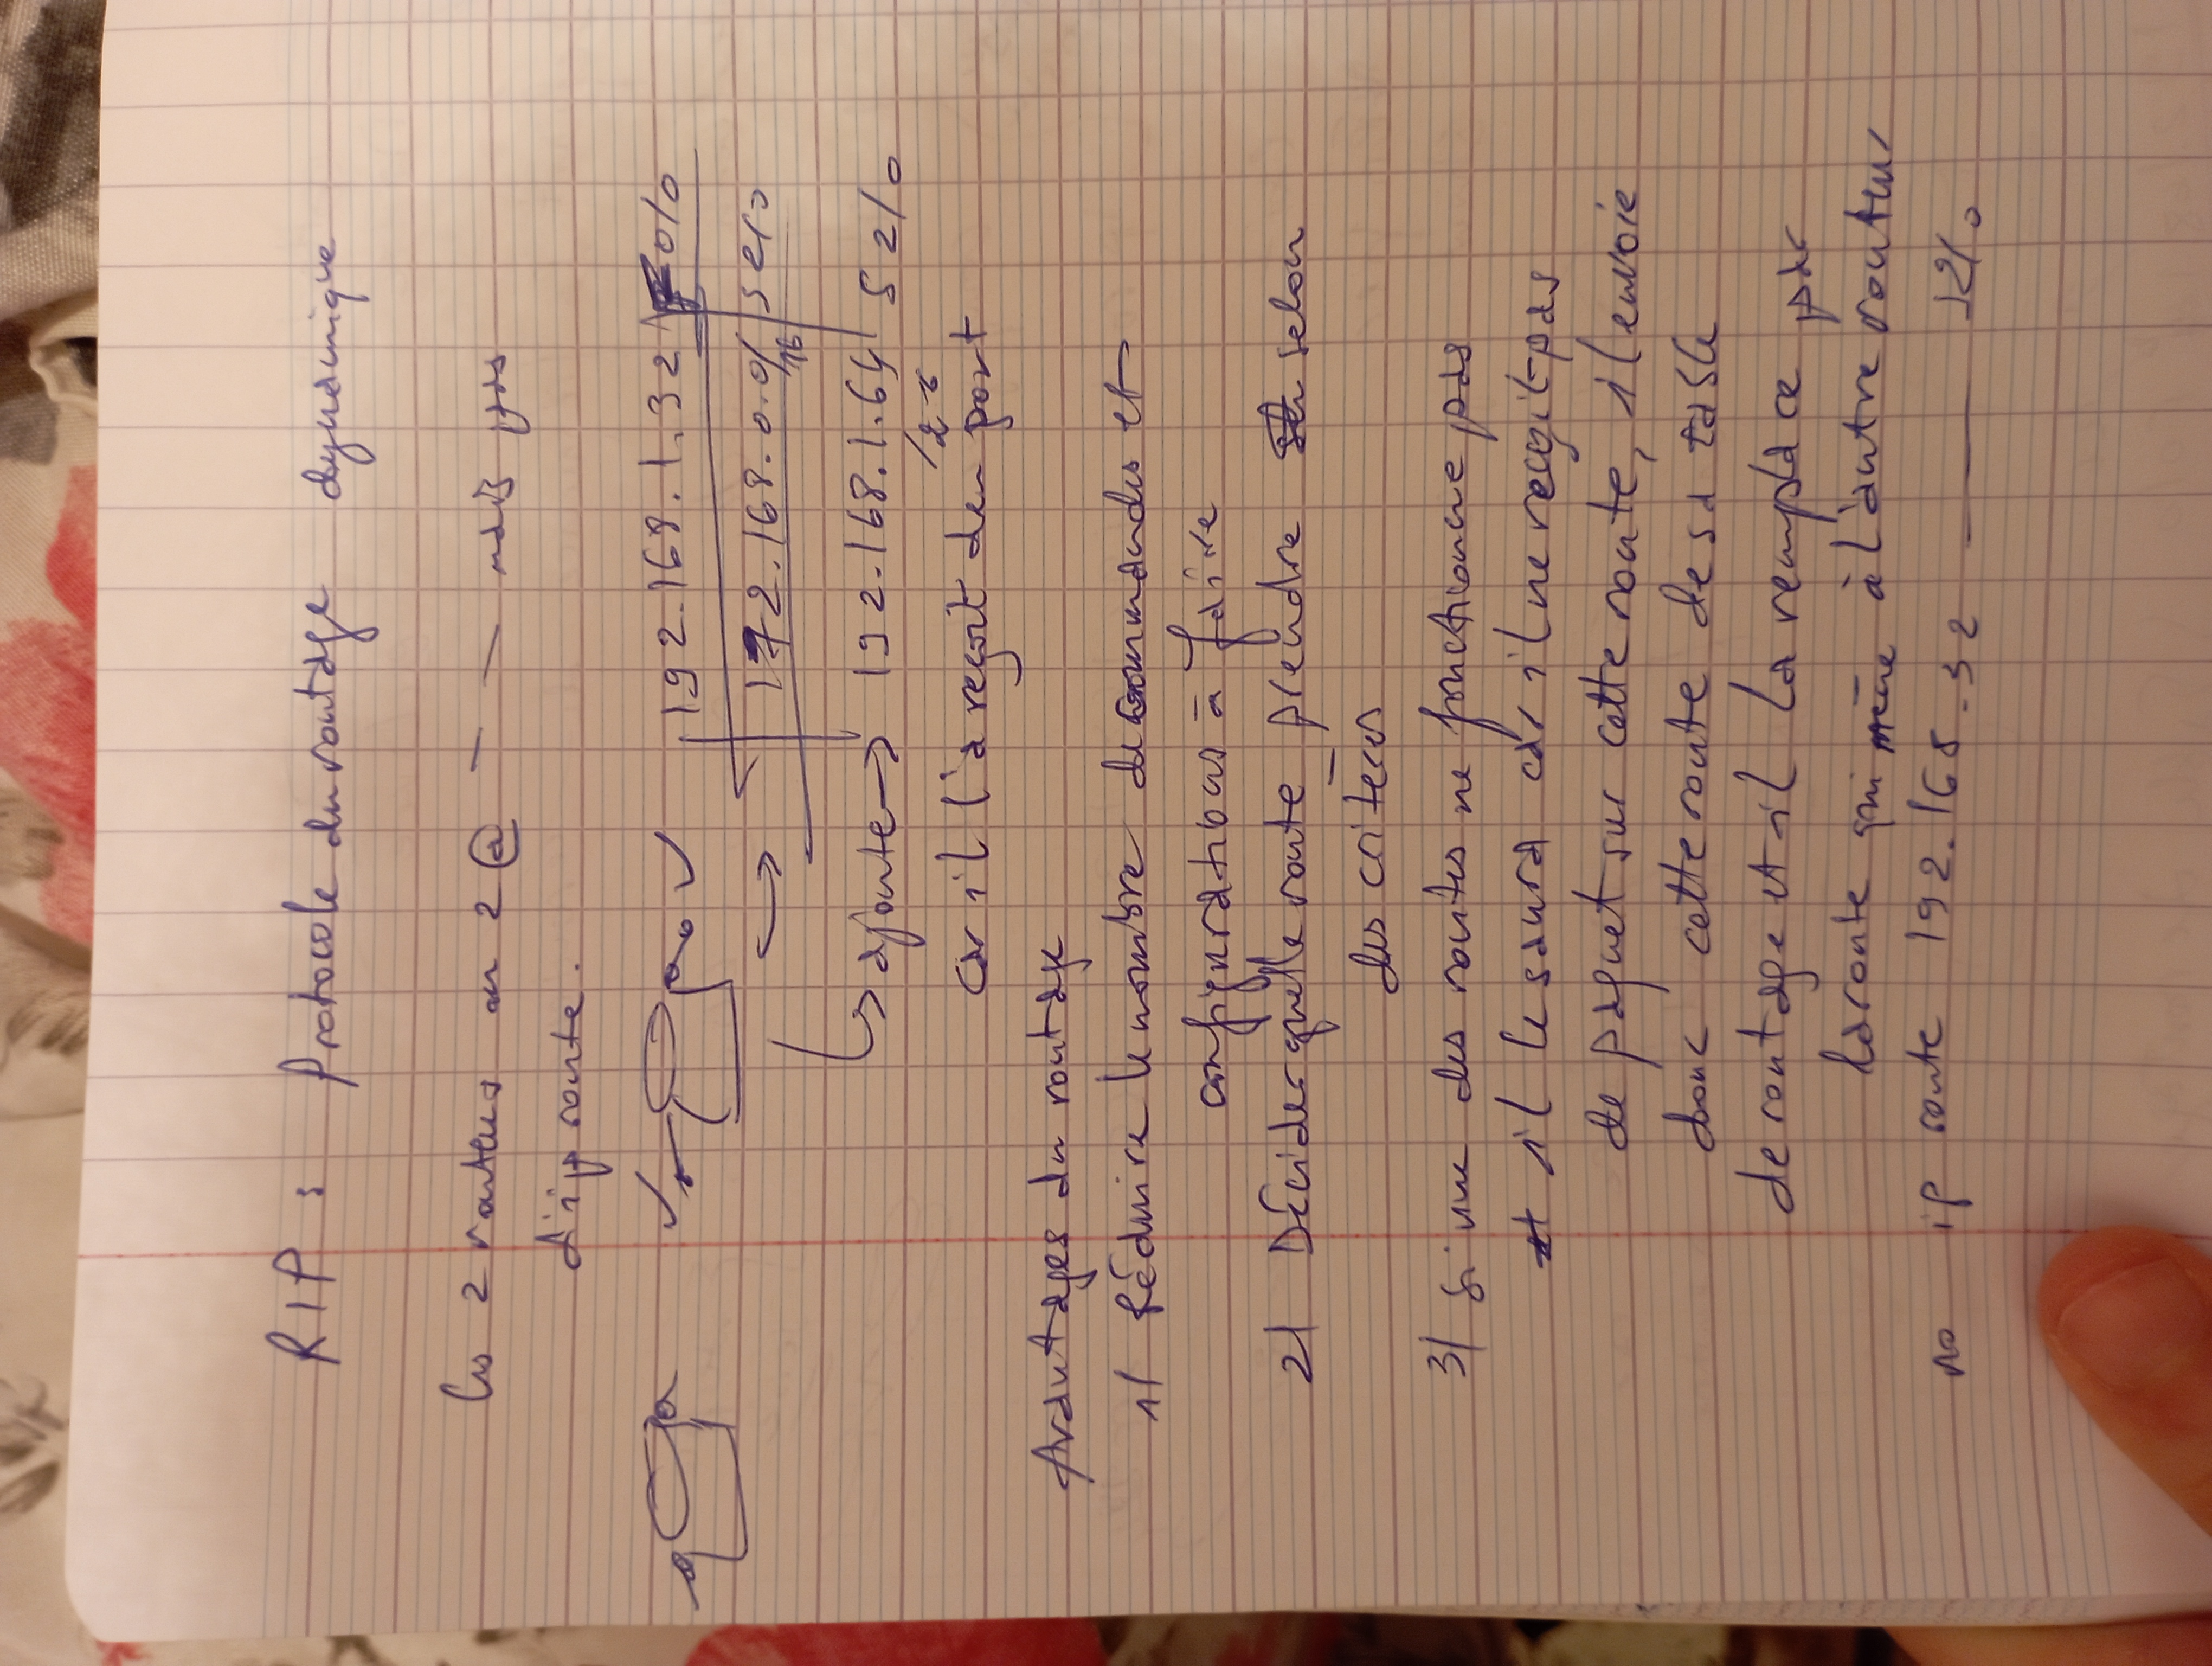 RIP : Protocole du routage dynamique
les 2 routeurs on 2 @ — — mais pas
d'ip route.
192.168.1.32 0/0
172.168.0.0/16 ser0
↳ ajoute → 192.168.1.64 S2/0
car il l'a reçoit den port
Avantages du routage
1/ Réduire le nombre de commandes et
configurations à faire
2/ Décider quelle route prendre selon
des critères
3/ Si une des routes ne fonctionne pas
et il le saura car il ne reçoit pas
de paquet sur cette route, il enlève
donc cette route de sa table
de routage et il la remplace par
la route qui mène à l'autre routeur
no ip route 192.168.32 ——